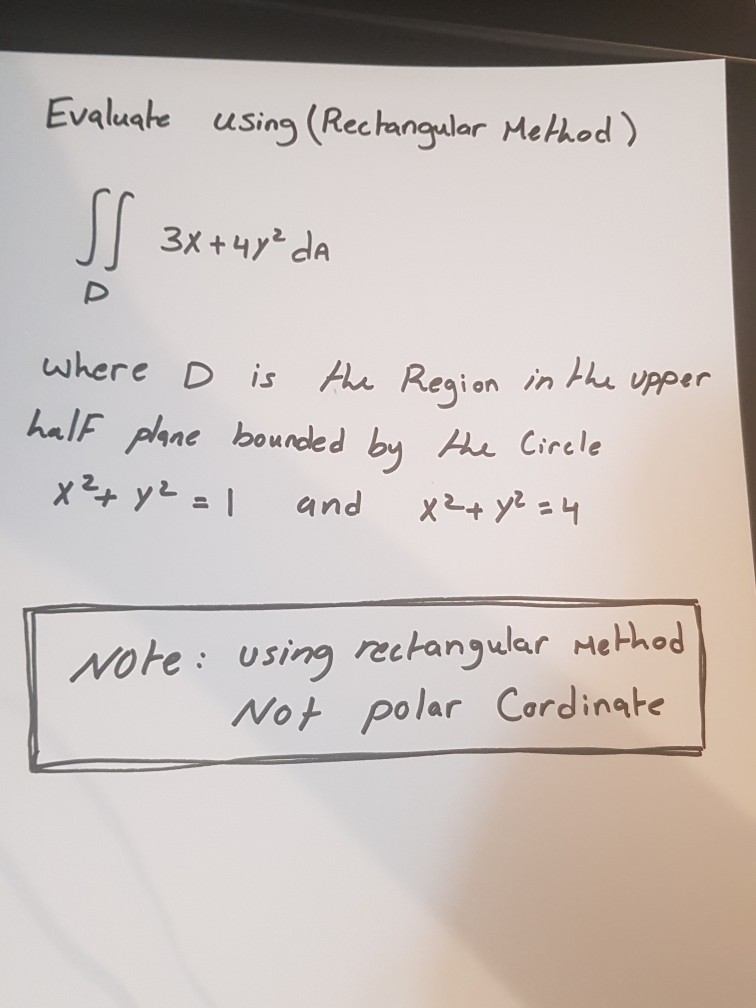 Evaluate using (Rectangular Method)
∬ 3x + 4y² dA
D
where D is the Region in the upper
half plane bounded by the Circle
x² + y² = 1 and x² + y² = 4
Note: using rectangular Method
Not polar Cordinate